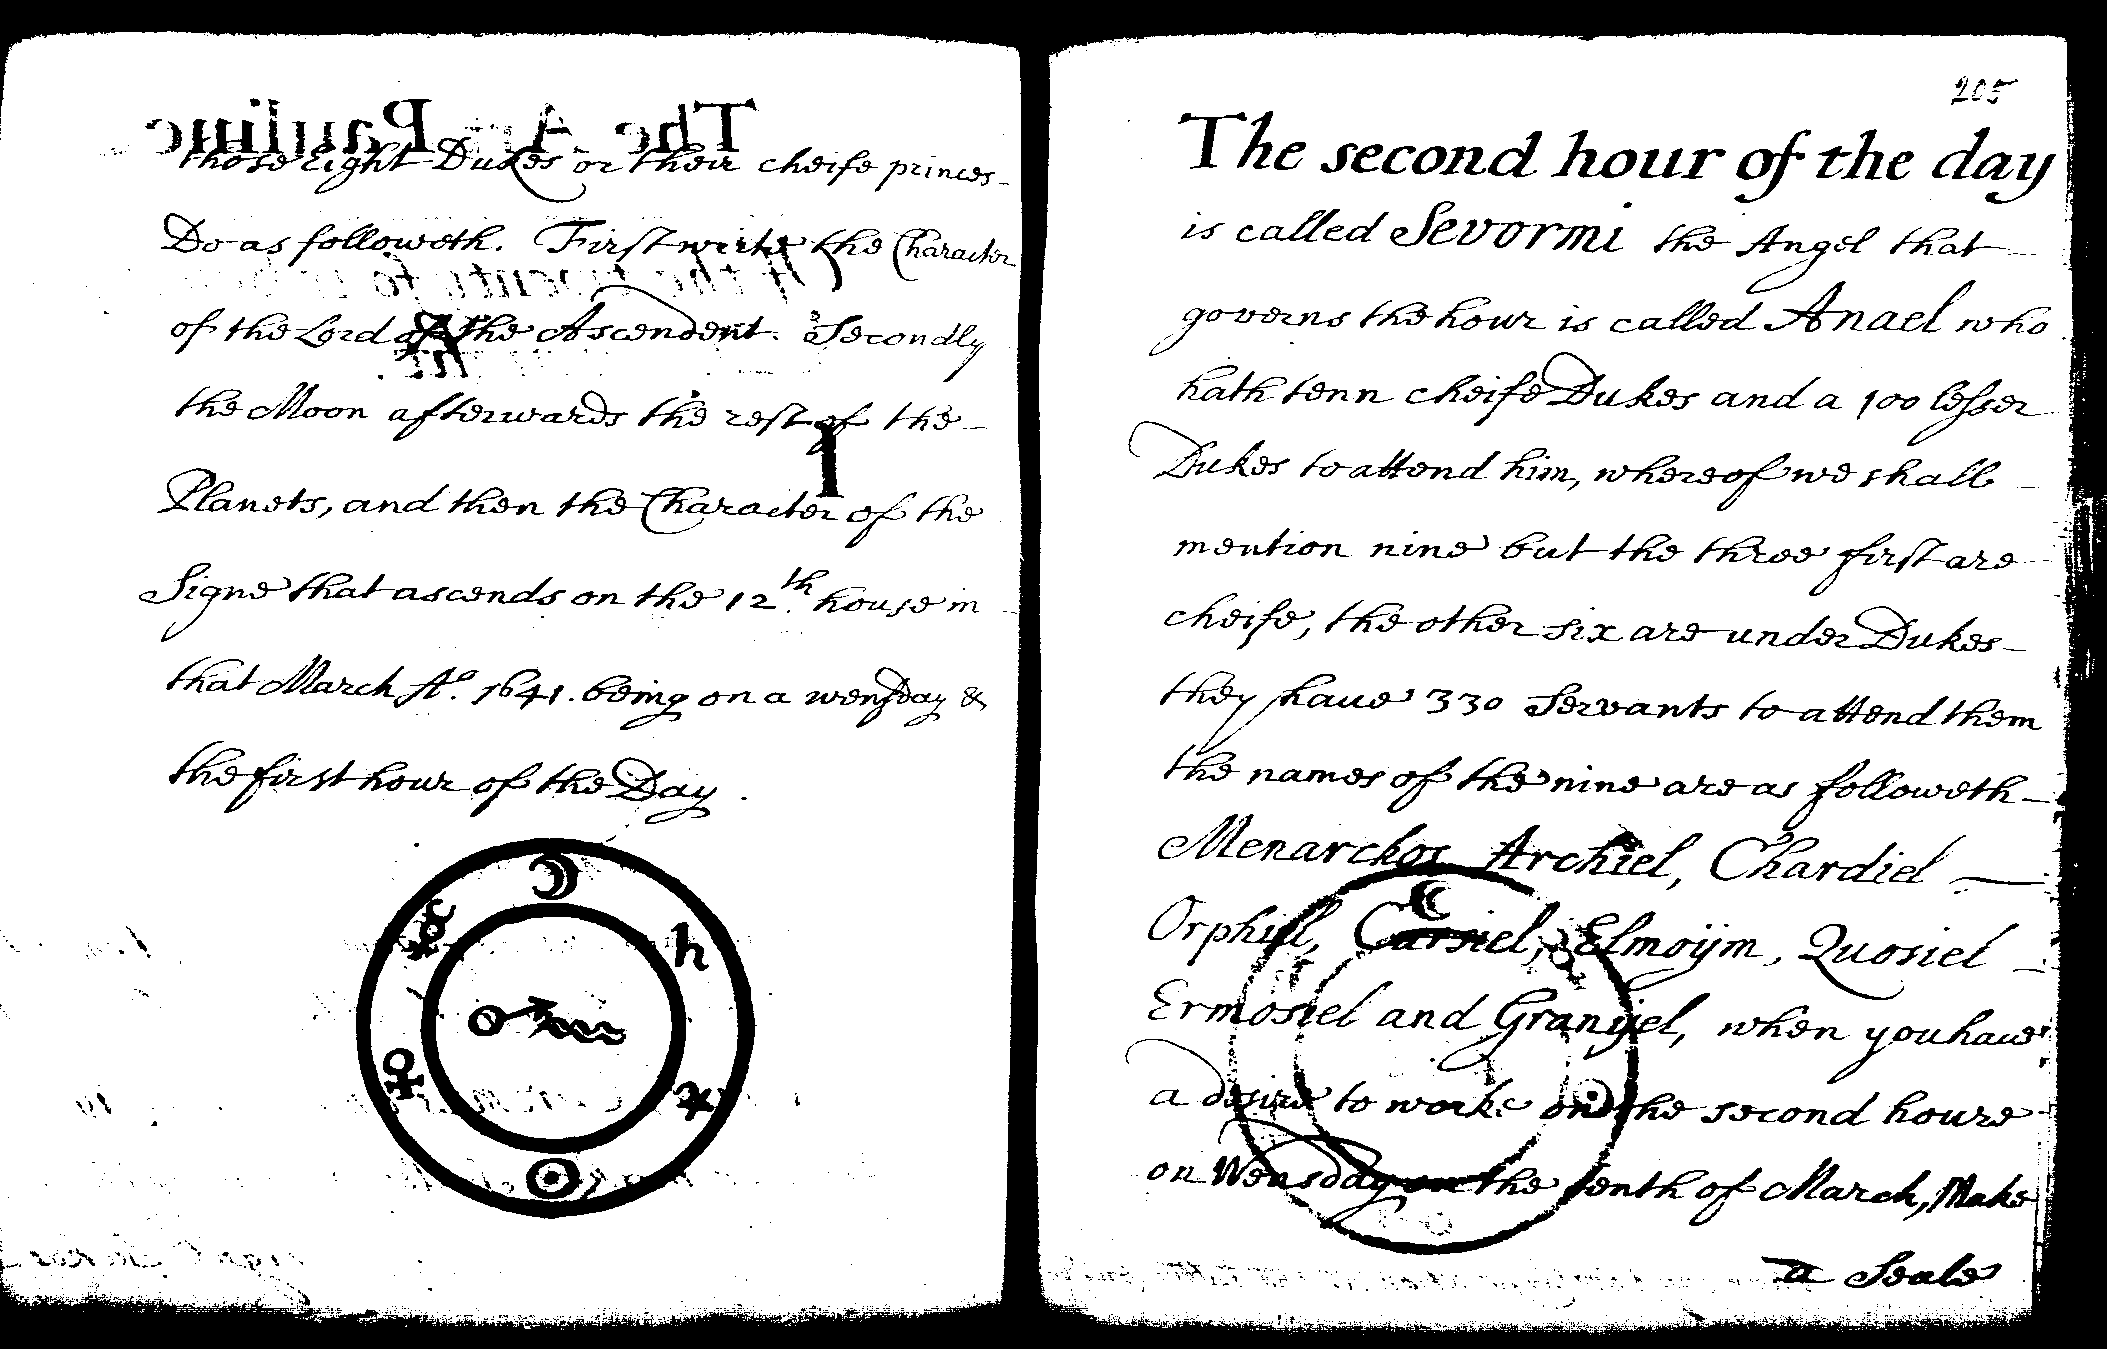 those Eight Dukes or their cheife princes
Do as followeth. First write the Character
of the Lord of the Ascendent. Secondly
the Moon afterwards the rest of the
Planets, and then the Character of the
Signe that ascends on the 12th. house in
that March Ao. 1641. being on a wensday &
the first hour of the Day.
205
The second hour of the day
is called Sevormi the Angel that
governs the hour is called Anael who
hath tenn cheife Dukes and a 100 lesser
Dukes to attend him, whereof we shall
mention nine but the three first are
cheife, the other six are under Dukes
they haue 330 Servants to attend them
the names of the nine are as followeth
Menarchos Archiel, Chardiel
Orphiel, Cursiel, Elmoijm, Quosiel
Ermosiel and Granijel, when you haue
a desire to worke on the second houre
on Wensday on the tenth of March, Make
a Seale